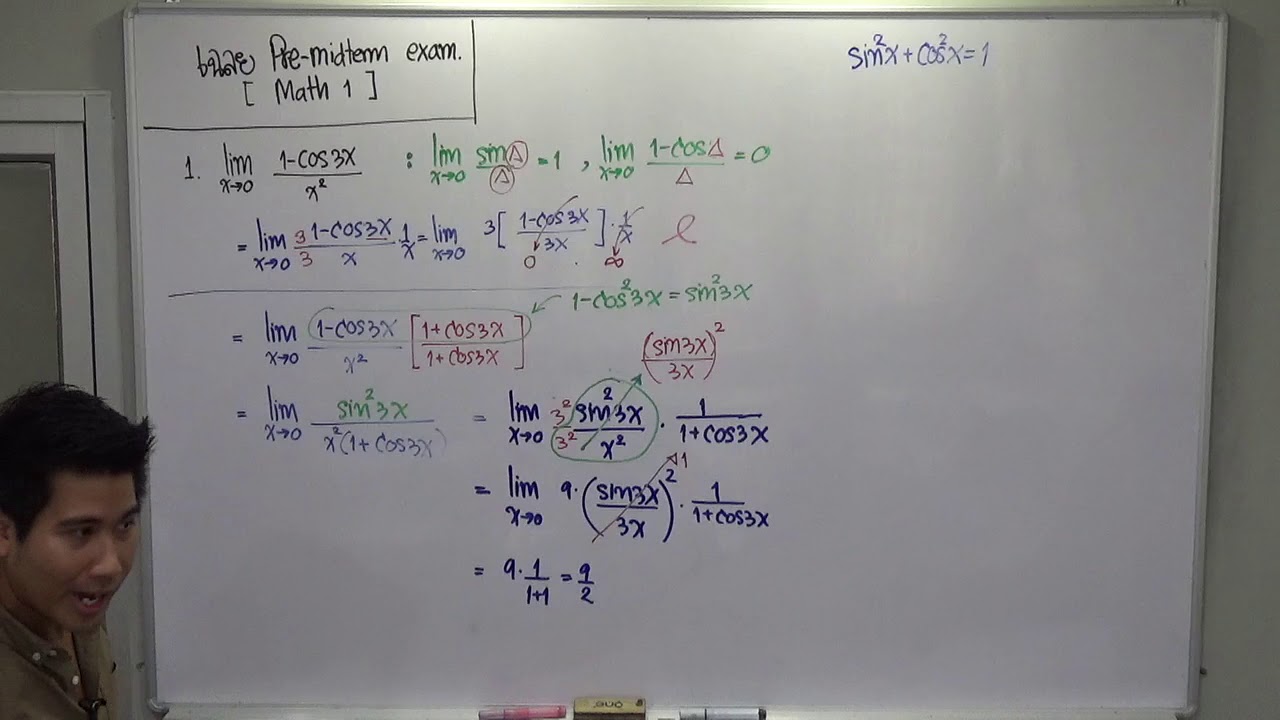 เฉลย Pre-midterm exam.
[ Math 1 ]
sin²x + cos²x = 1
1. lim x→0 (1-cos3x)/x² : lim x→0 sin△/△ = 1 , lim x→0 (1-cos△)/△ = 0
= lim x→0 3/3 (1-cos3x)/x · 1/x = lim x→0 3[ (1-cos3x)/3x ] · 1/x
0 ∞
1-cos²3x = sin²3x
= lim x→0 (1-cos3x)/x² [ (1+cos3x)/(1+cos3x) ]
(sin3x/3x)²
= lim x→0 sin²3x/(x²(1+cos3x)) = lim x→0 3²/3² sin²3x/x² · 1/(1+cos3x)
= lim x→0 9·(sin3x/3x)² · 1/(1+cos3x)
1
= 9·1/(1+1) = 9/2
one